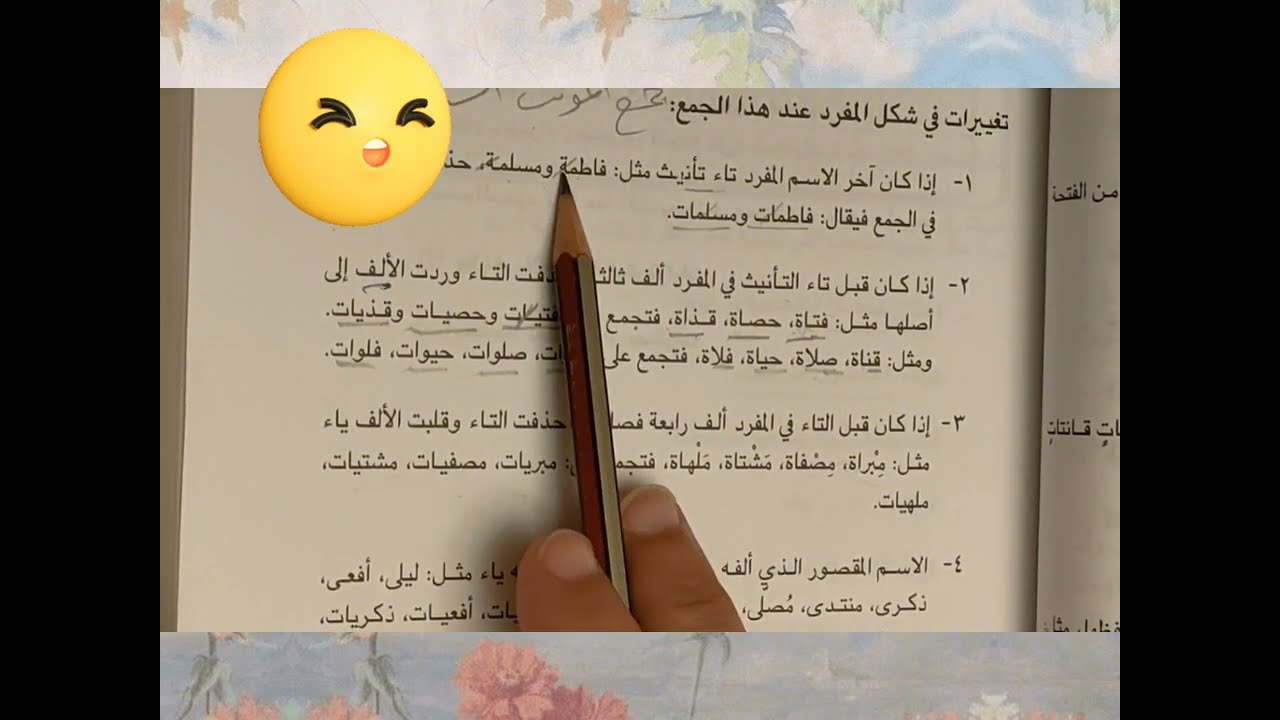 جمع المؤنث
تغييرات في شكل المفرد عند هذا الجمع:
١- إذا كان آخر الاسم المفرد تاء تأنيث مثل: فاطمة ومسلمة، حذ
في الجمع فيقال: فاطمات ومسلمات.
٢- إذا كان قبل تاء التأنيث في المفرد ألف ثالثة حذفت التاء وردت الألف إلى
أصلها مثل: فتاة، حصاة، قذاة، فتجمع فتيات وحصيات وقذيات.
ومثل: قناة، صلاة، حياة، فلاة، فتجمع على ات، صلوات، حيوات، فلوات.
٣- إذا كان قبل التاء في المفرد ألف رابعة فصا حذفت التاء وقلبت الألف ياء
مثل: مِبْراة، مِصْفاة، مَشْتاة، مَلْهاة، فتجم : مبريات، مصفيات، مشتيات،
ملهيات.
٤- الاسم المقصور الذي ألفه ه ياء مثل: ليلى، أفعى،
ذكرى، منتدى، مُصلى، يات، أفعيات، ذكريات،
من الفتحة
اتٍ قانتاتٍ